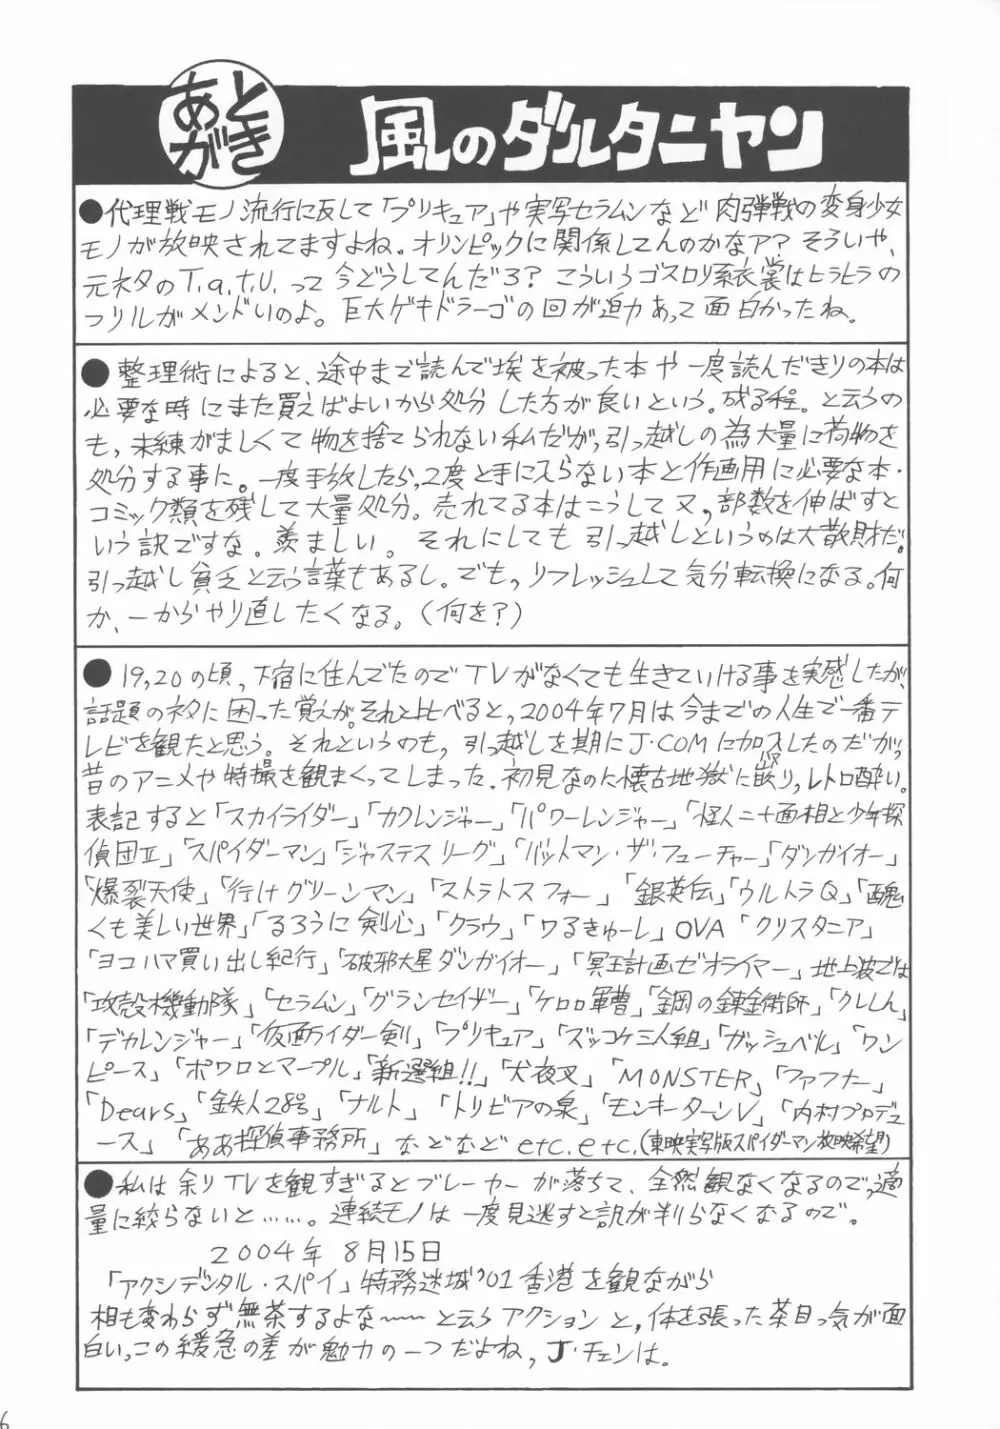 あとがき
風のダルタニヤン
●代理戦モノ流行に反して「プリキュア」や実写セラムンなど肉弾戦の変身少女
モノが放映されてますよね。オリンピックに関係してんのかなァ?そういや、
元ネタのT.a.t.u.って今どうしてんだろ?こういうゴスロリ系衣裳はヒラヒラの
フリルがメンドいのよ。巨大ゲキドラーゴの回が迫力あって面白かったね。
●整理術によると、途中まで読んで埃を被った本や一度読んだきりの本は
必要な時にまた買えばよいから処分した方が良いという。成る程。と云うの
も,未練がましくて物を捨てられない私だが,引っ越しの為大量に荷物を
処分する事に。一度手放したら,2度と手に入らない本と作画用に必要な本・
コミック類を残して大量処分。売れてる本はこうして又,部数を伸ばすと
いう訳ですな。羨ましい。それにしても引っ越しというのは大散財だ。
引っ越し貧乏と云う言葉もあるし。でも,リフレッシュして気分転換になる。何
か、一からやり直したくなる。(何を?)
●19,20の頃,下宿に住んでたのでTVがなくても生きていける事を実感したが、
話題のネタに困った覚えが。それと比べると,2004年7月は今までの人生で一番テ
レビを観たと思う。それというのも,引っ越しを期にJ・COMに加入したのだがっ
昔のアニメや特撮を観まくってしまった。初見なのに懐古地獄に嵌り,レトロ酔い。
表記すると「スカイライダー」「カクレンジャー」「パワーレンジャー」「怪人二十面相と少年探
偵団Ⅱ」「スパイダーマン」「ジャステスリーグ」「バットマン・ザ・フューチャー」「ダンガイオー」
「爆裂天使」「行けグリーンマン」「ストラトスフォー」「銀英伝」「ウルトラQ」「醜
くも美しい世界」「るろうに剣心」「クラウ」「ワるきゅーレ」OVA「クリスタニア」
「ヨコハマ買い出し紀行」「破邪大星ダンガイオー」「冥王計画ゼオライマー」地上波では
「攻殻機動隊」「セラムン」「グランセイザー」「ケロロ軍曹」「鋼の錬金術師」「クレしん」
「デカレンジャー」「仮面ライダー剣」「プリキュア」「ズッコケ三人組」「ガッシュベル」「ワン
ピース」「ポワロとマープル」「新選組!!」「犬夜叉」「MONSTER」「ファフナー」
「Dears」「鉄人28号」「ナルト」「トリビアの泉」「モンキーターンV」「内村プロデュ
ース」「ああ探偵事務所」などなどetc.etc.(東映実写版スパイダーマン放映希望)
●私は余りTVを観すぎるとブレーカーが落ちて、全然観なくなるので,適
量に絞らないと……。連続モノは一度見逃すと訳が判らなくなるので。
2004年8月15日
「アクシデンタル・スパイ」特務迷城'01香港を観ながら
相も変わらず無茶するよな〜〜と云うアクションと,体を張った茶目っ気が面
白い,この緩急の差が魅力の一つだよね,J・チェンは。
6